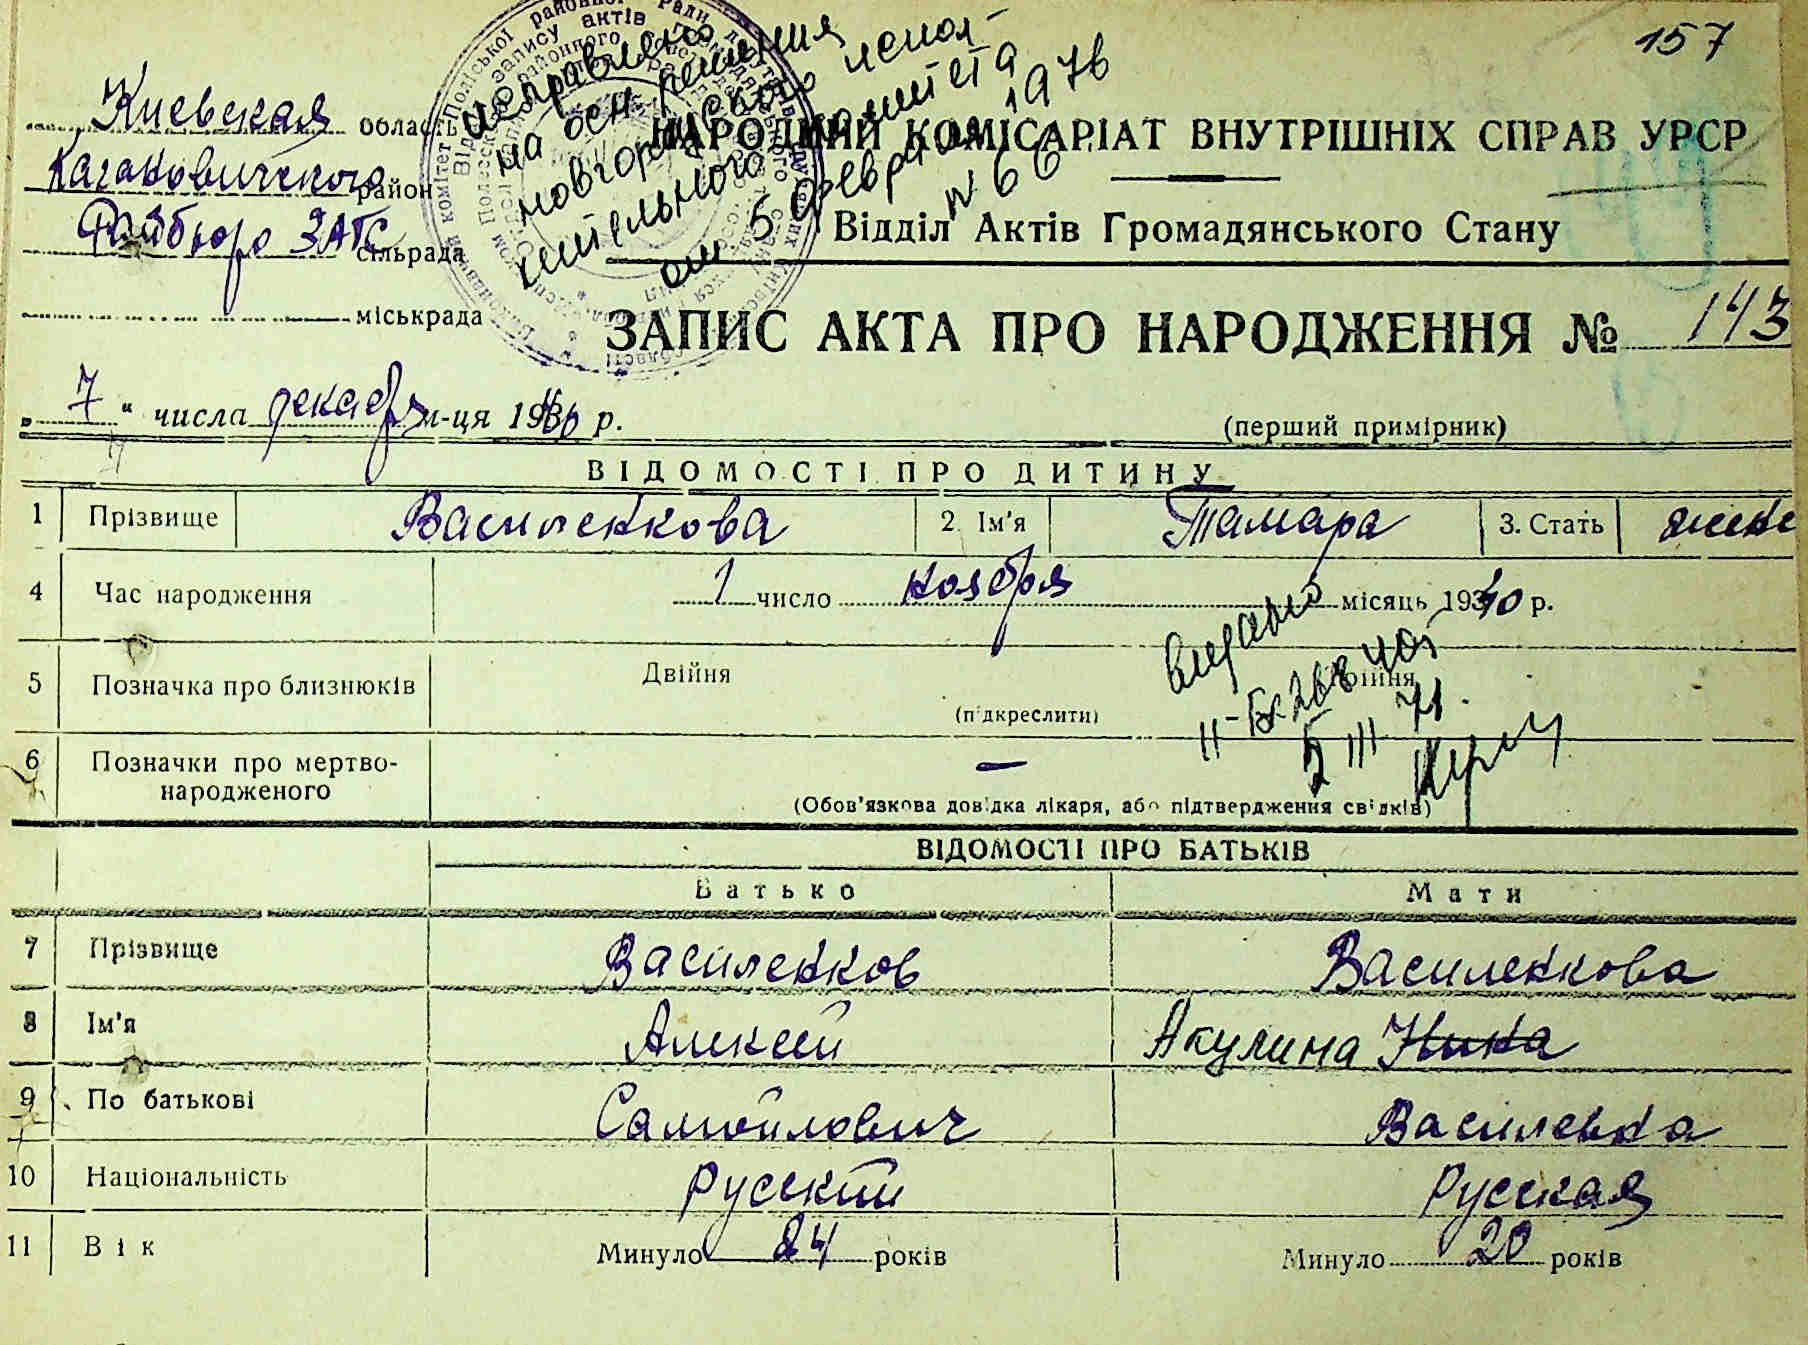 157
Киевская область
Кагановичского район
Райбюро ЗАГС сільрада
міськрада
исправлено
на осн. решения
новгородского испол-
нительного комитета
от 5 февраля 1971
№ 66
НАРОДНИЙ КОМІСАРІАТ ВНУТРІШНІХ СПРАВ УРСР
Відділ Актів Громадянського Стану
ЗАПИС АКТА ПРО НАРОДЖЕННЯ № 143
„ 7 “ числа декабря м-ця 1940 р.
(перший примірник)
ВІДОМОСТІ ПРО ДИТИНУ
1 Прізвище Василенкова 2. Ім'я Тамара 3. Стать женс
4 Час народження 1 число ноября місяць 1940 р.
5 Позначка про близнюків Двійня Трійня
(підкреслити)
выдано
5 III 71.
6 Позначки про мертво-
народженого —
(Обов'язкова довідка лікаря, або підтвердження свідків)
ВІДОМОСТІ ПРО БАТЬКІВ
Батько Мати
7 Прізвище Василенков Василенкова
8 Ім'я Алексей Акулина Нина
9 По батькові Самойлович Васильевна
10 Національність Русский Русская
11 Вік Минуло 24 років Минуло 20 років